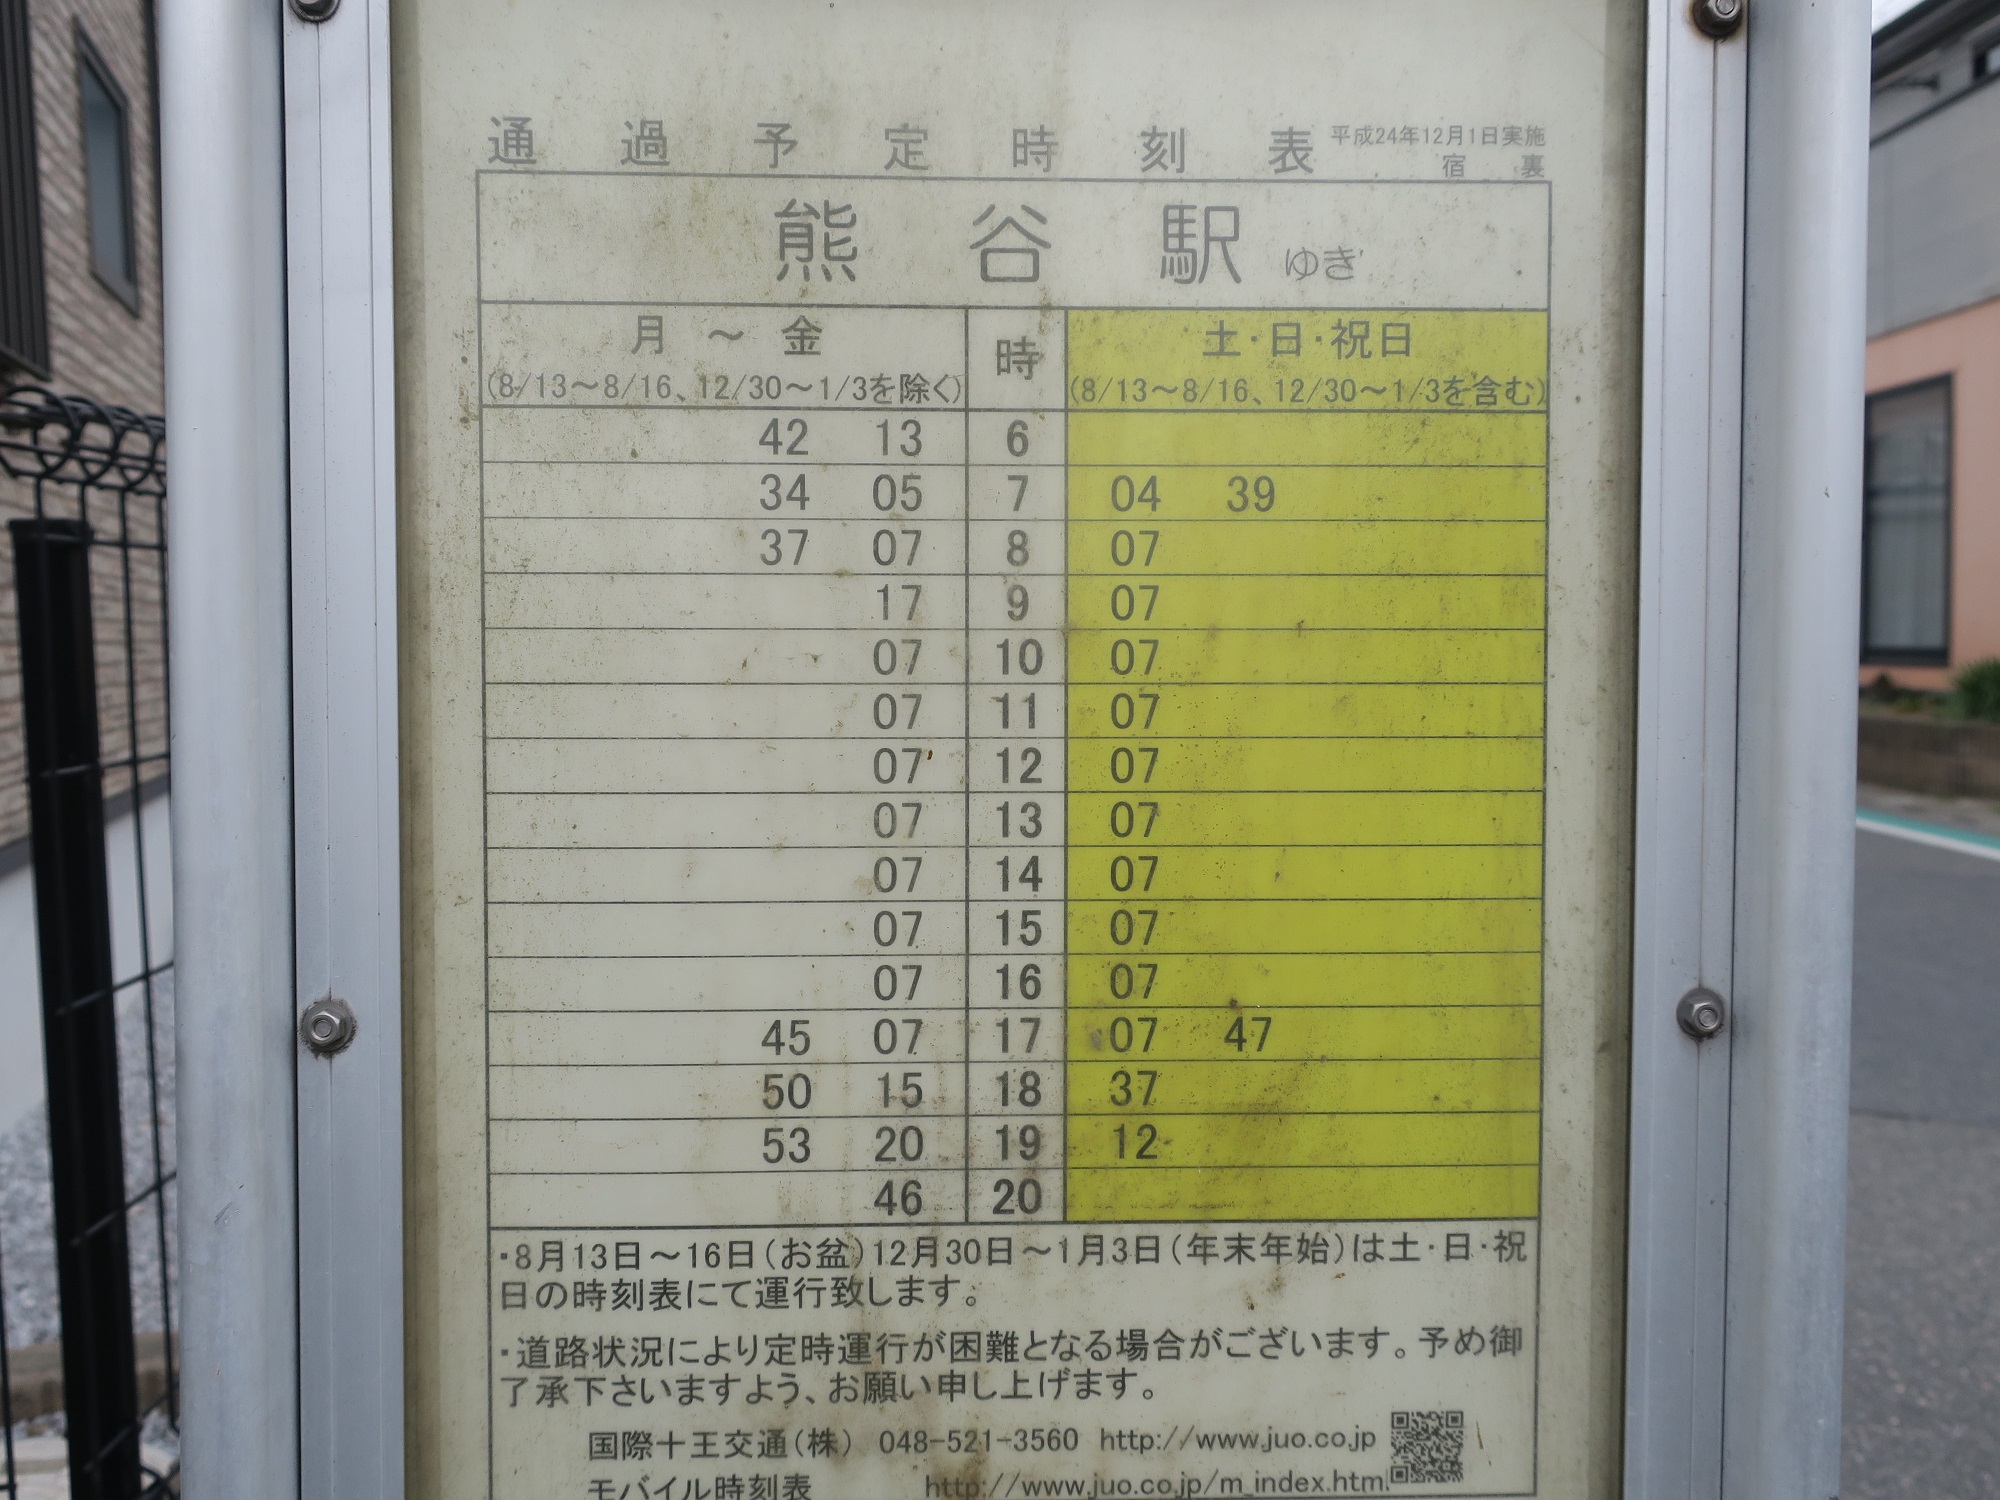 通過予定時刻表 平成24年12月1日実施
宿 裏
熊谷駅 ゆき
月～金 時 土・日・祝日
(8/13～8/16、12/30～1/3を除く) (8/13～8/16、12/30～1/3を含む)
42 13 6
34 05 7 04 39
37 07 8 07
17 9 07
07 10 07
07 11 07
07 12 07
07 13 07
07 14 07
07 15 07
07 16 07
45 07 17 07 47
50 15 18 37
53 20 19 12
46 20
・8月13日～16日(お盆)12月30日～1月3日(年末年始)は土・日・祝
日の時刻表にて運行致します。
・道路状況により定時運行が困難となる場合がございます。予め御
了承下さいますよう、お願い申し上げます。
国際十王交通(株) 048-521-3560 http://www.juo.co.jp
モバイル時刻表 http://www.juo.co.jp/m_index.htm